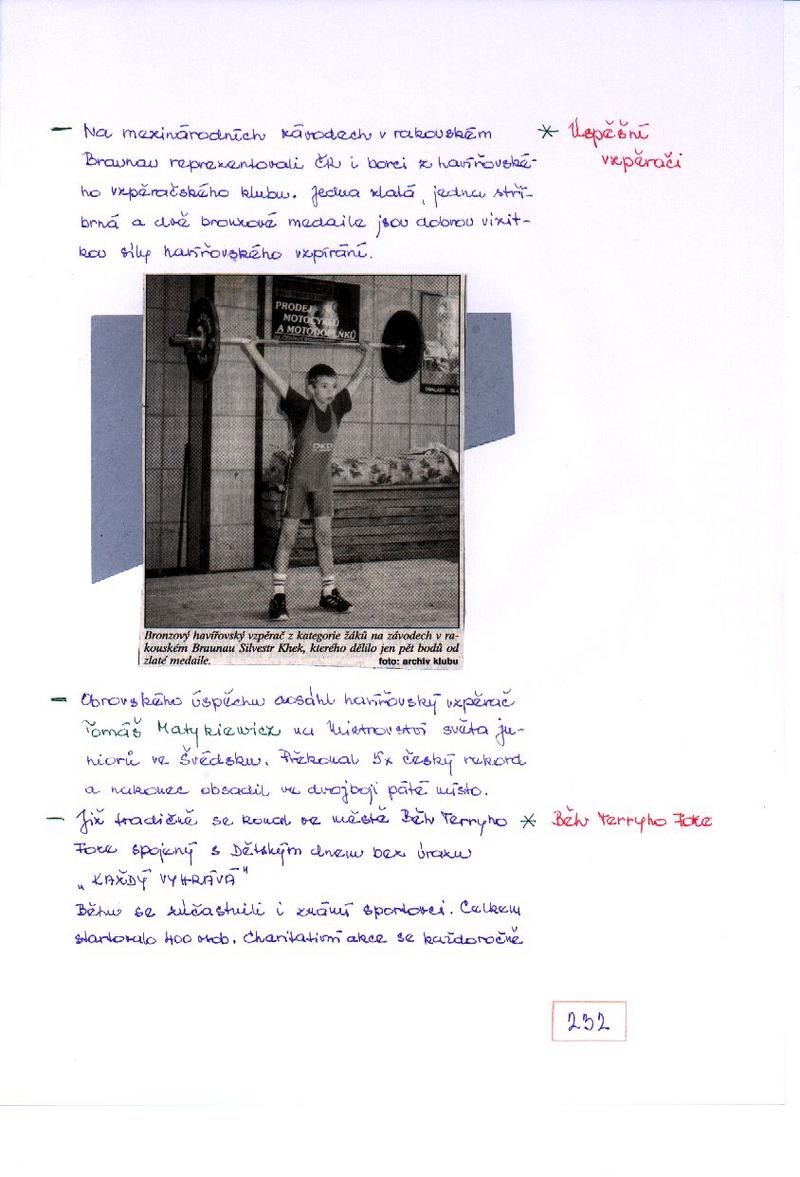 — Na mezinárodních závodech v rakouském
* Úspěšní
vzpěrači
Braunau reprezentovali ČR i borci z havířovské-
ho vzpěračského klubu. Jedna zlatá, jedna stří-
brná a dvě bronzové medaile jsou dobrou vizit-
kou síly havířovského vzpírání.
PRODEJ
MOTOCYKLŮ
A MOTODOPLŇKŮ
Bronzový havířovský vzpěrač z kategorie žáků na závodech v ra-
kouském Braunau Silvestr Khek, kterého dělilo jen pět bodů od
zlaté medaile.
foto: archiv klubu
— Obrovského úspěchu dosáhl havířovský vzpěrač
Tomáš Matykiewicz na Mistrovství světa ju-
niorů ve Švédsku. Překonal 5x český rekord
a nakonec obsadil ve dvojboji páté místo.
— Již tradičně se konal ve městě Běh Terryho
* Běh Terryho Foxe
Foxe spojený s Dětským dnem bez úrazu
„KAŽDÝ VYHRÁVÁ"
Běhu se zúčastnili i známí sportovci. Celkem
startovalo 400 osob. Charitativní akce se každoročně
232